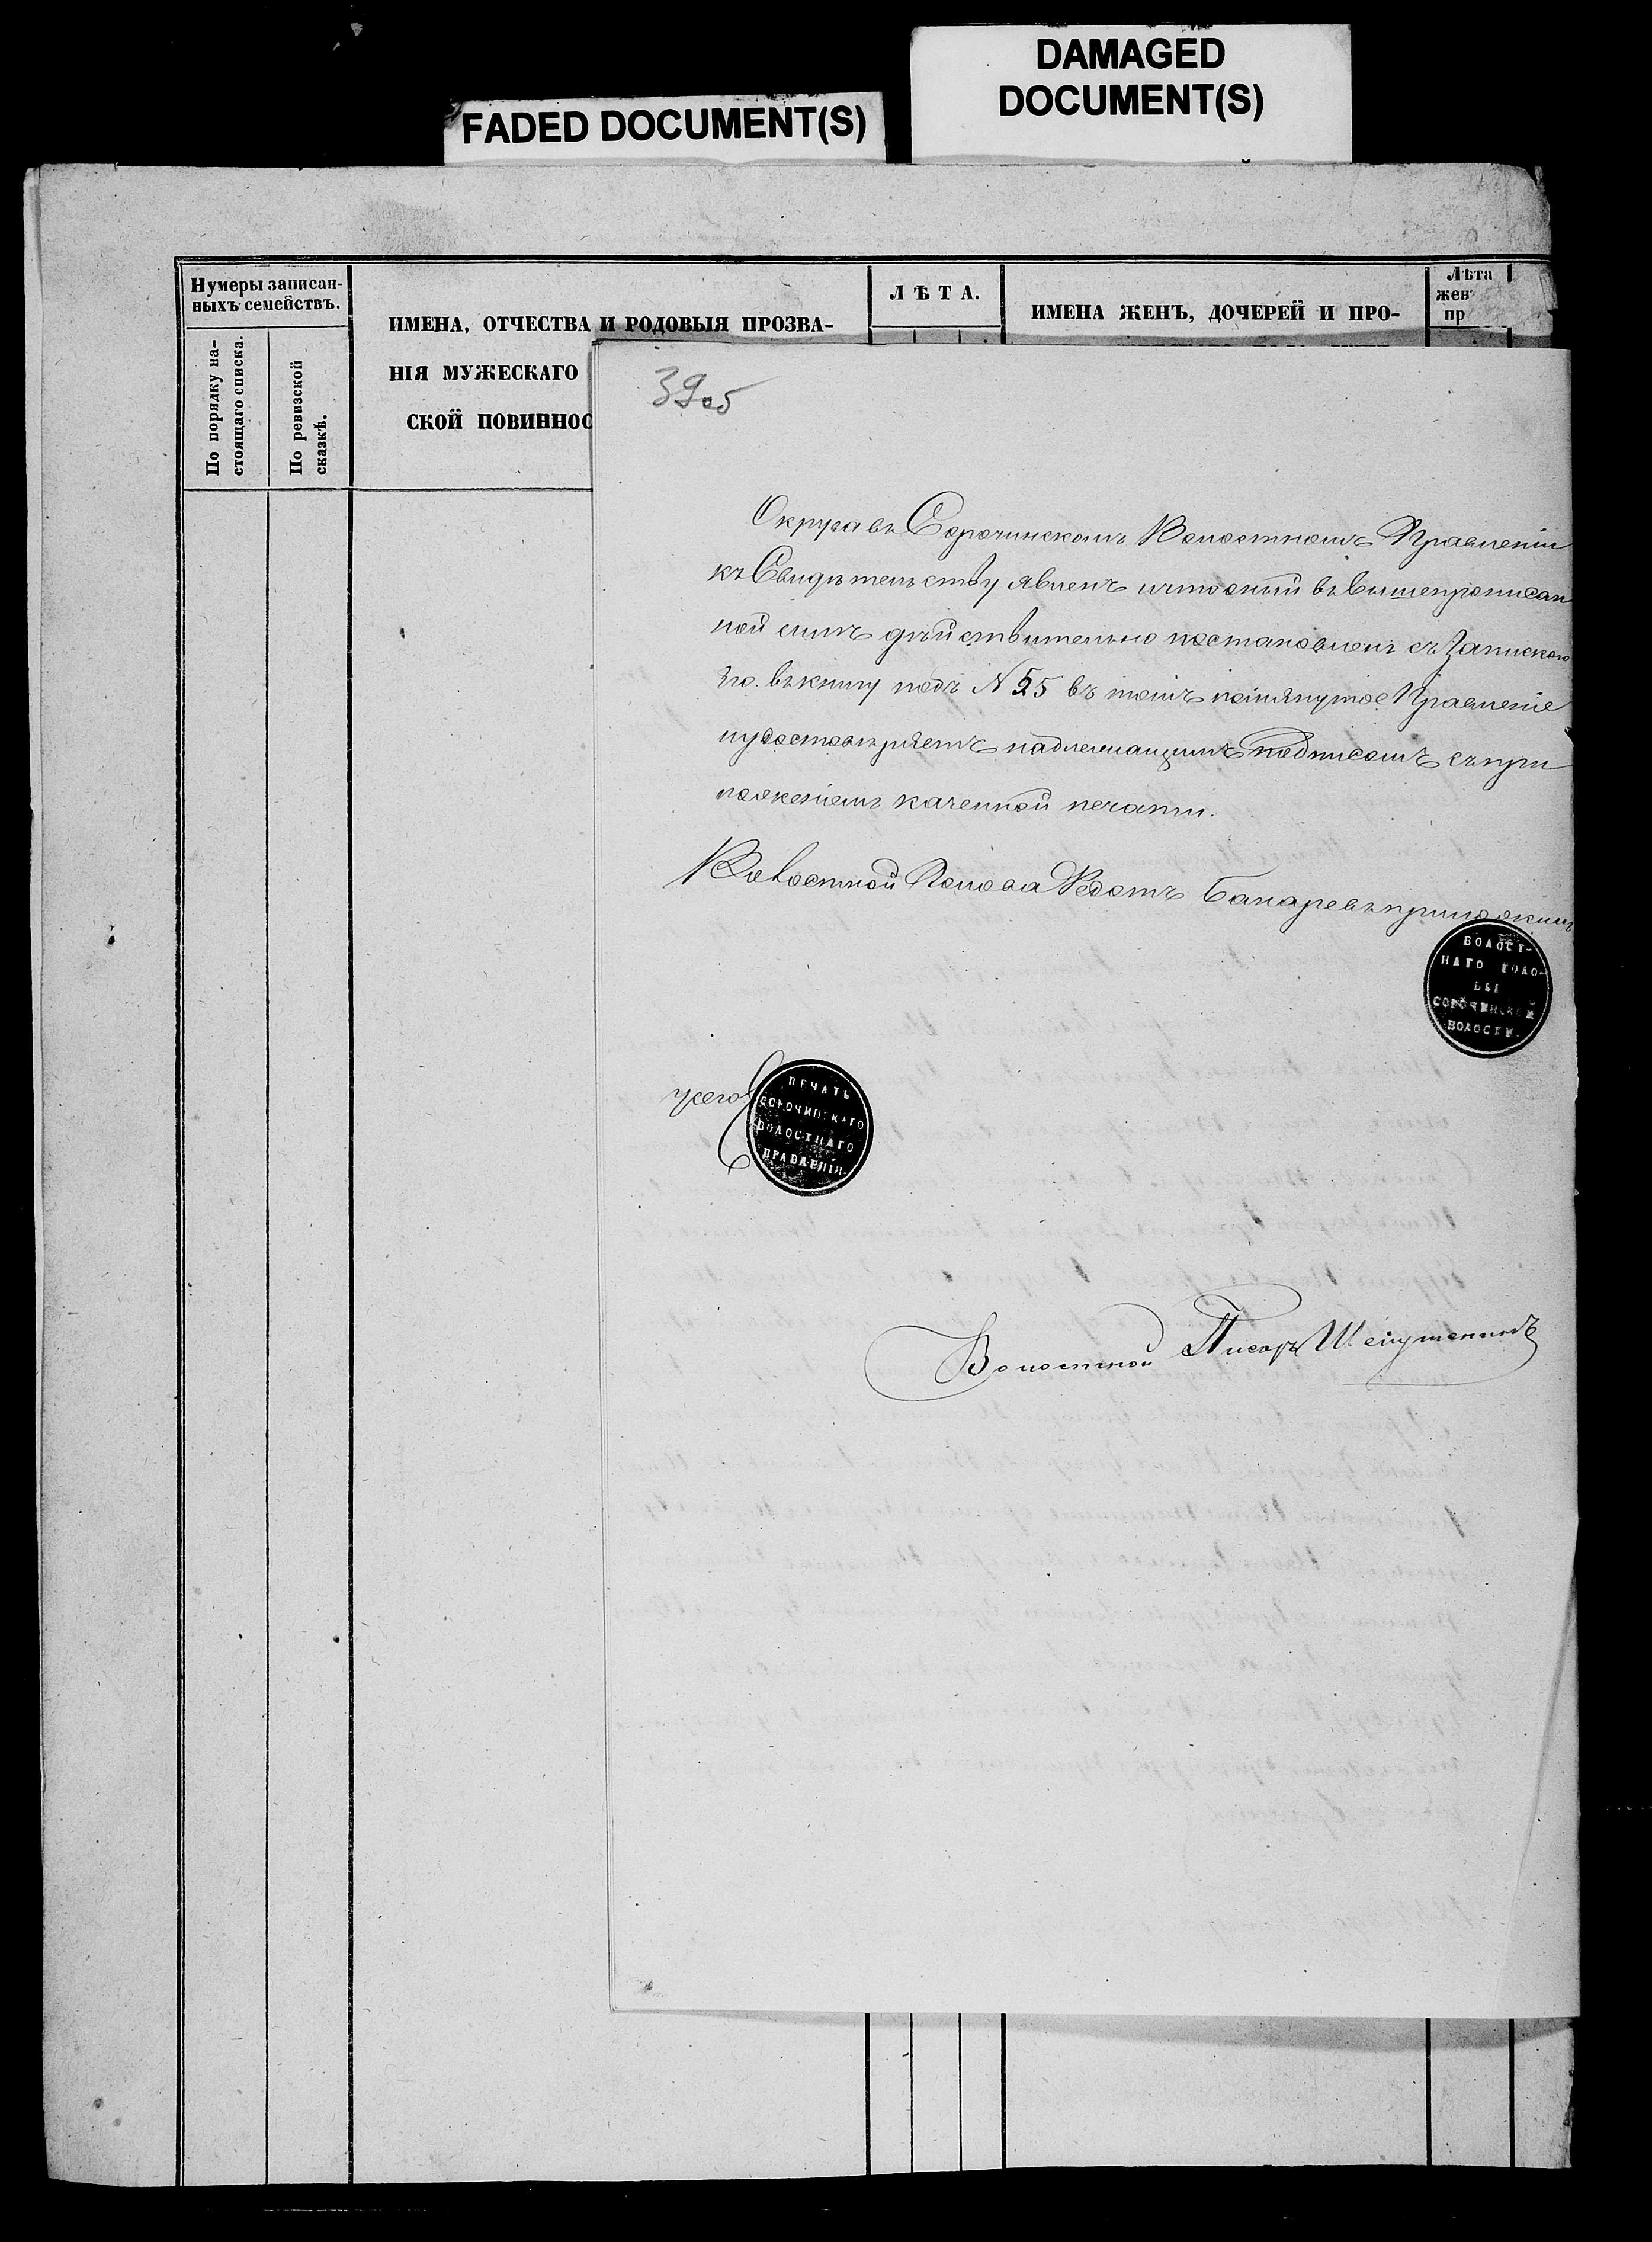 DAMAGED
DOCUMENT(S)
FADED DOCUMENT(S)
Нумеры записан-
ныхъ семействъ.
По порядку на-
стоящаго списка.
По ревизской
сказкѣ.
ИМЕНА, ОТЧЕСТВА И РОДОВЫЯ ПРОЗВА-
НІЯ МУЖЕСКАГО
СКОЙ ПОВИННОС
ЛѢТА.
ИМЕНА ЖЕНЪ, ДОЧЕРЕЙ И ПРО-
Лѣта
жен
пр
39об
Округа въ Сорочинскомъ Волостномъ Правленіи
къ Свидѣтельству явленъ ичтооный въ вышепрописан
ной силѣ дѣйствительно постановленъ съ Запискою
его въ книгу подъ N 55 въ томъ помянутое Правленіе
иудостовѣряетъ надлежащимъ подписомъ съ при
ложеніемъ казенной печати.
Волостной Голова Федотъ приложилъ
ВОЛОСТ-
НАГО ГОЛО-
ВЫ
СОРОЧИНСКОЙ
ВОЛОСТИ.
ПЕЧАТЬ
СОРОЧИНСКАГО
ВОЛОСТНАГО
ПРАВЛЕНІЯ.
Волостной Писарь